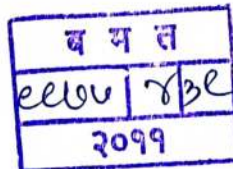 ब म त
९९७५ | ४|३९
२०११